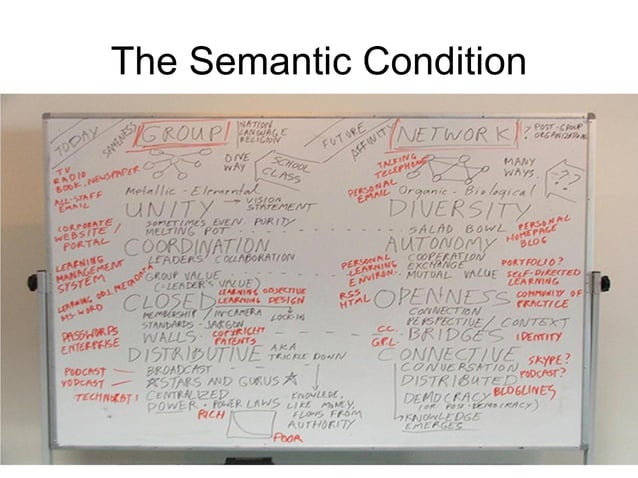 The Semantic Condition
TODAY
SAMENESS
GROUP
NATION
LANGUAGE
RELIGION
FUTURE
AFFINITY
NETWORK
? POST-GROUP
ORGANIZATIONS
TV
RADIO
BOOK. NEWSPAPER
ALL-STAFF
EMAIL
ONE
WAY
SCHOOL
CLASS
TALKING
TELEPHONE
PERSONAL
EMAIL
MANY
WAYS.
Metallic - Elemental
Organic - Biological
UNITY
VISION
STATEMENT
DIVERSITY
CORPORATE
WEBSITE /
PORTAL
SOMETIMES EVEN PURITY
MELTING POT
SALAD BOWL
PERSONAL
HOMEPAGE
BLOG
COORDINATION
AUTONOMY
LEARNING
MANAGEMENT
SYSTEM
LEADERS COLLABORATION
GROUP VALUE
(=LEADER'S VALUE)
PERSONAL
LEARNING
ENVIRON.
COOPERATION
EXCHANGE
MUTUAL VALUE
PORTFOLIO?
SELF-DIRECTED
LEARNING
LEARNING OBJ METADATA
MS-WORD
CLOSED
LEARNING OBJECTIVE
LEARNING DESIGN
RSS
HTML
OPENNESS
COMMUNITY OF
PRACTICE
MEMBERSHIP / IN-CAMERA
STANDARDS - JARGON
LOCK-IN
CONNECTION
PERSPECTIVE / CONTEXT
PASSWORDS
ENTERPRISE
WALLS
COPYRIGHT
PATENTS
CC
GPL
BRIDGES
IDENTITY
DISTRIBUTIVE
AKA
TRICKLE DOWN
CONNECTIVE
SKYPE?
PODCAST
VODCAST
TECHNORATI
BROADCAST
STARS AND GURUS
CENTRALIZED
POWER - POWER LAWS
KNOWLEDGE,
LIKE MONEY,
FLOWS FROM
AUTHORITY
CONVERSATION
DISTRIBUTED
DEMOCRACY
(OR POST-DEMOCRACY)
KNOWLEDGE
EMERGES
PODCAST?
BLOGLINES
RICH
POOR